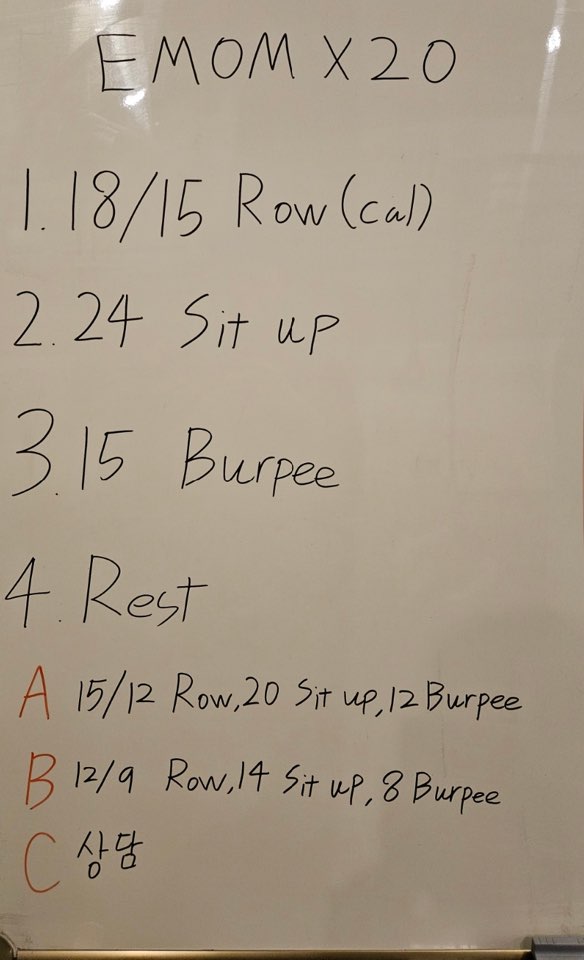 EMOM X 20
1. 18/15 Row (cal)
2. 24 Sit up
3. 15 Burpee
4. Rest
A 15/12 Row, 20 Sit up, 12 Burpee
B 12/9 Row, 14 Sit up, 8 Burpee
C 상담